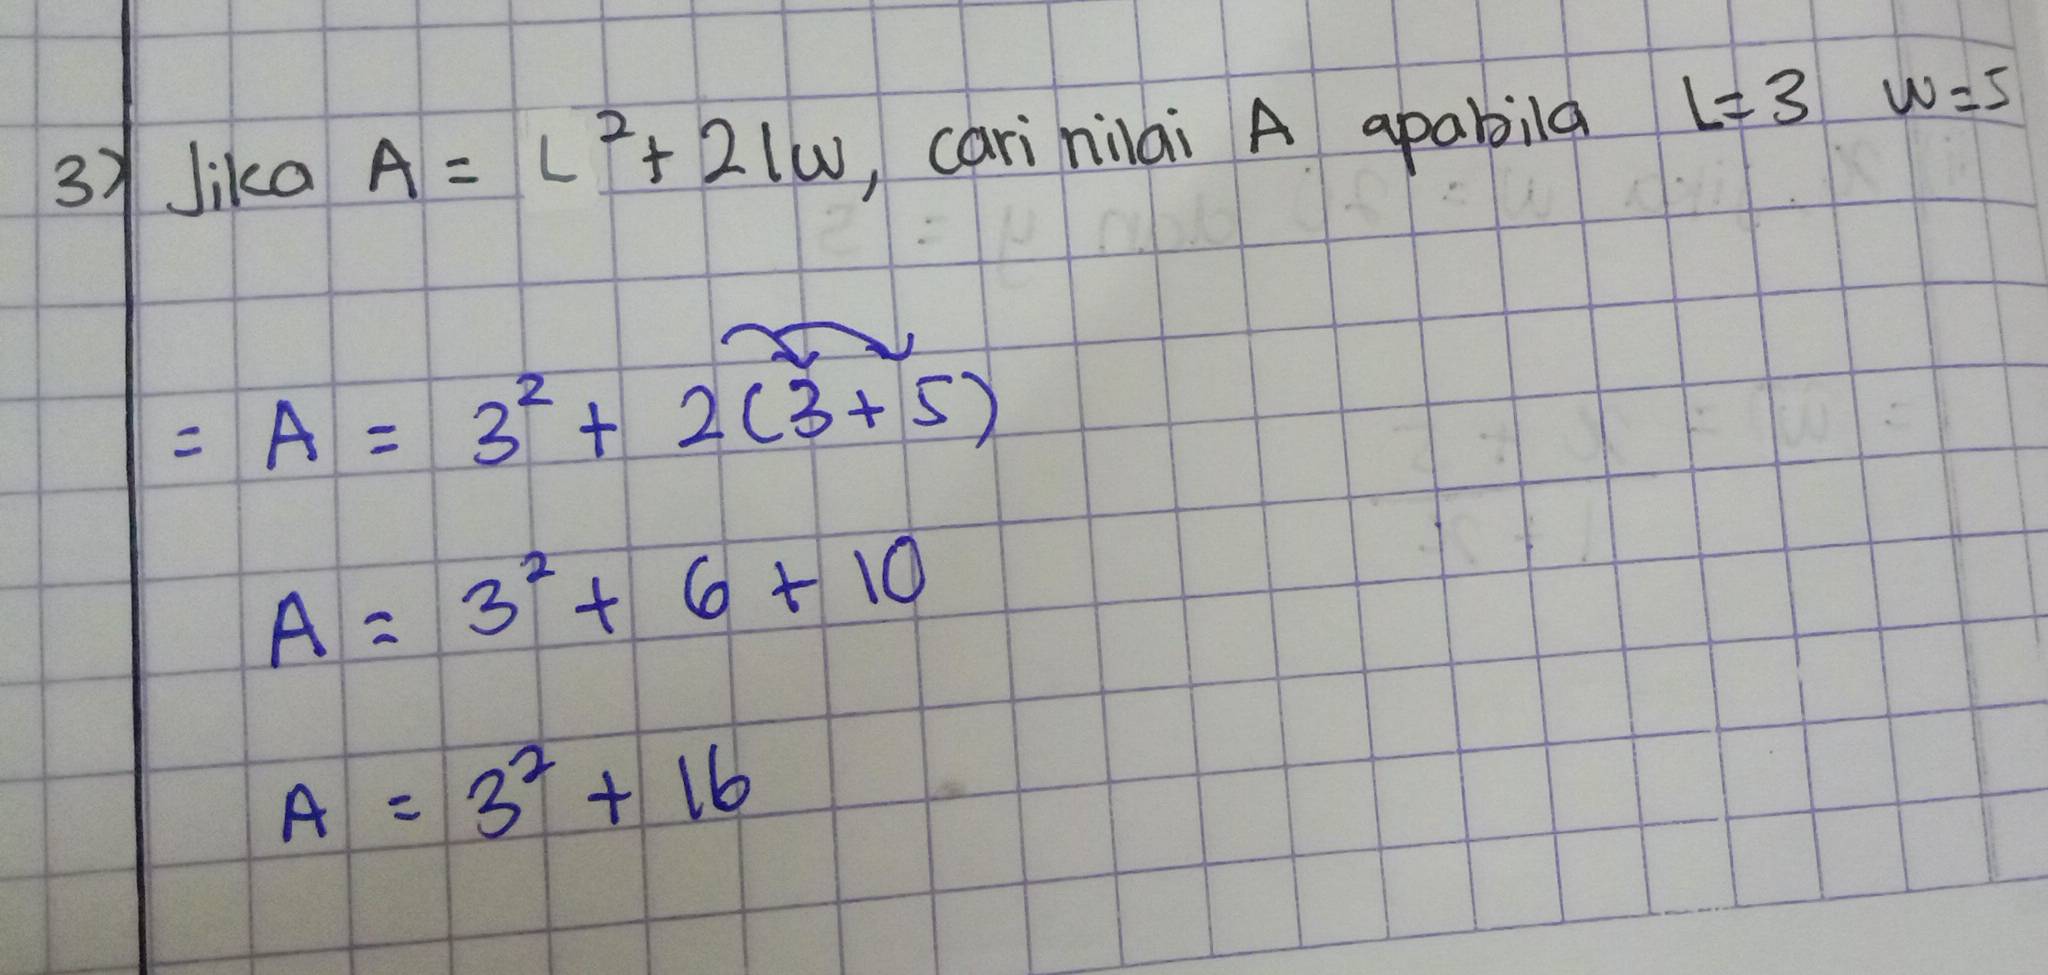 3) Jika A = L² + 2lw, cari nilai A apabila L=3 w=5
= A = 3² + 2(3+5)
A = 3² + 6 + 10
A = 3² + 16